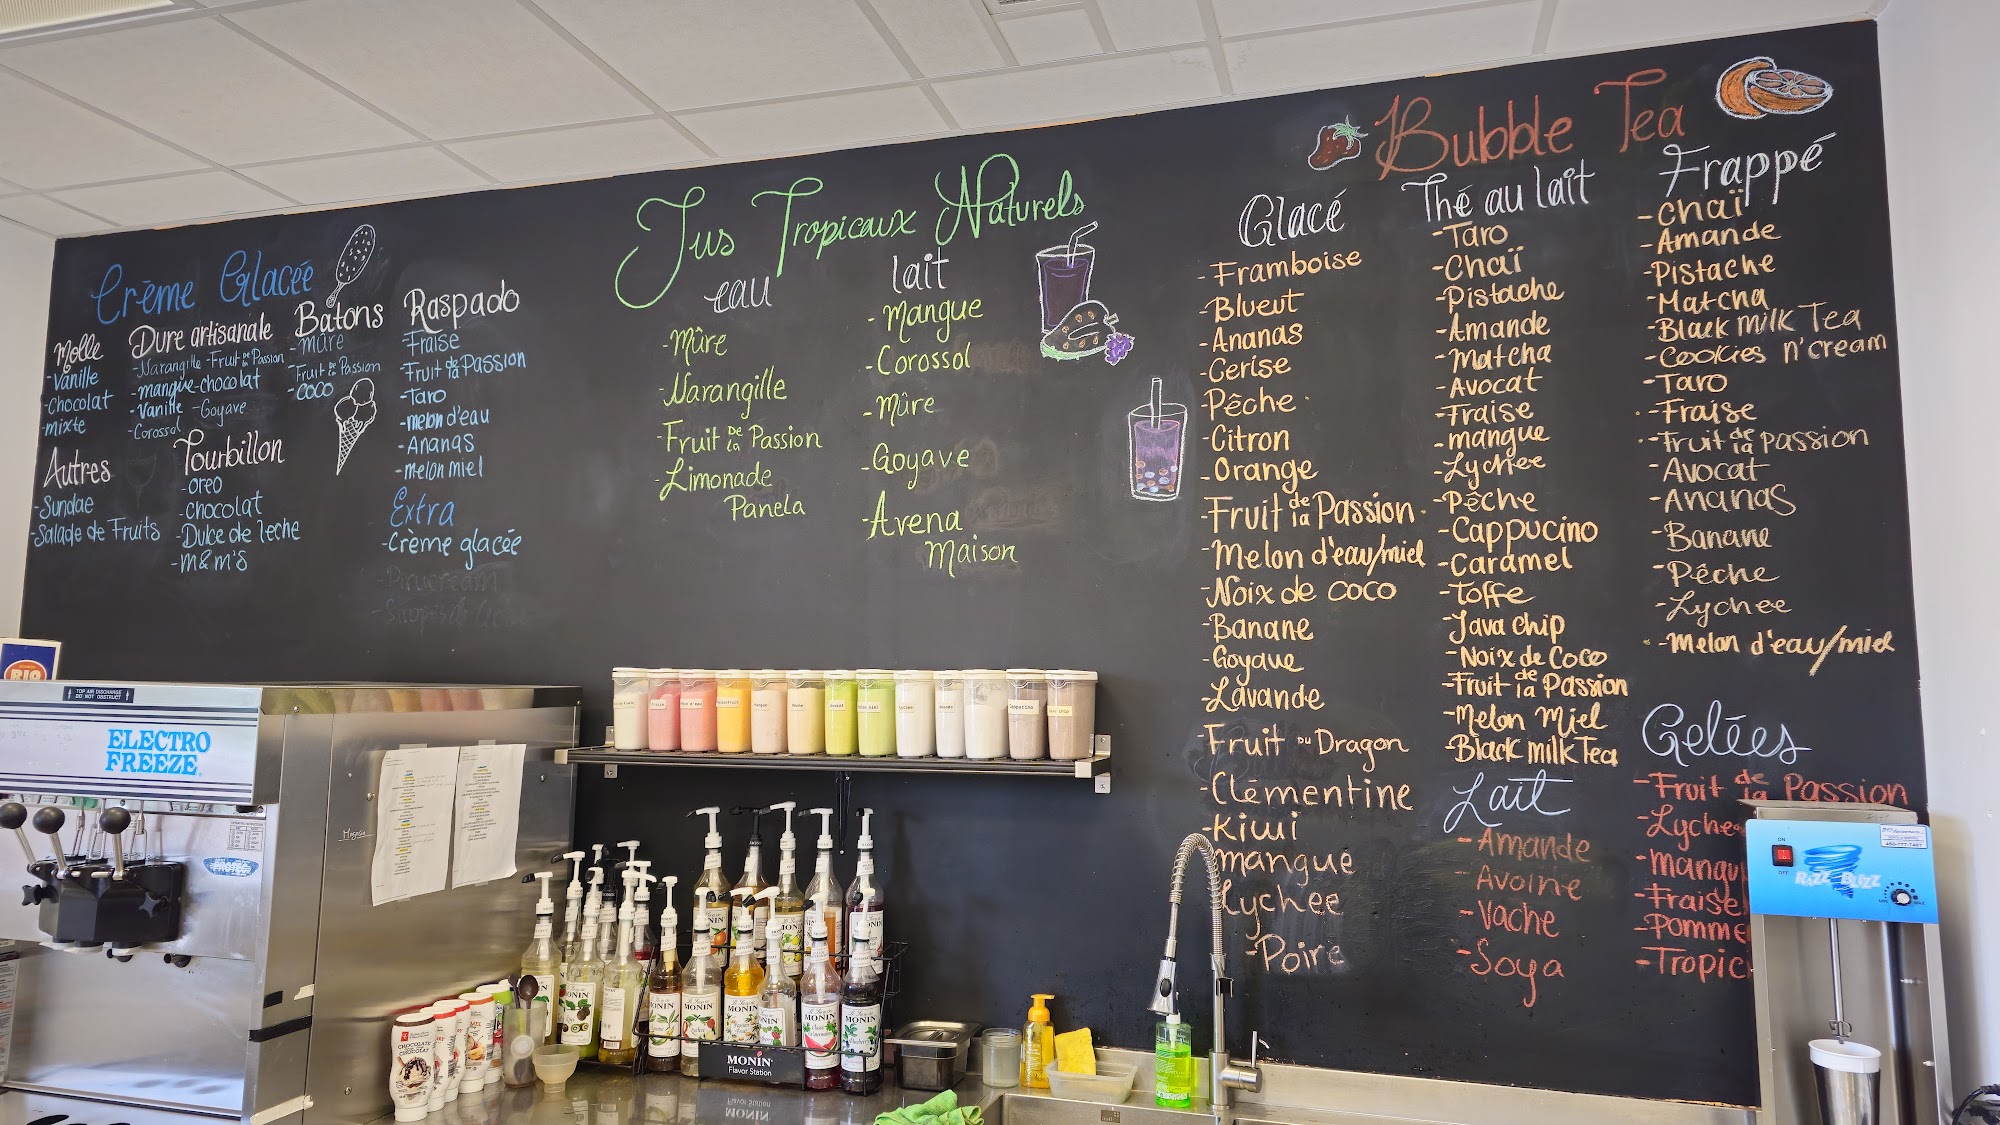 Crème Glacée
Molle
-Vanille
-Chocolat
-mixte
Dure artisanale
-Narangille -Fruit de la Passion
-mangue -chocolat
-Vanille -Goyave
-Corossol
Batons
-mûre
-Fruit de la Passion
-coco
Raspado
-Fraise
-Fruit de la Passion
-Taro
-melon d'eau
-Ananas
-melon miel
Extra
-Crème glacée
Autres
-Sundae
-Salade de Fruits
Tourbillon
-oreo
-chocolat
-Dulce de leche
-m&m's
Jus Tropicaux Naturels
eau
-Mûre
-Narangille
-Fruit DE la Passion
-Limonade
Panela
lait
-Mangue
-Corossol
-Mûre
-Goyave
-Avena
Maison
Bubble Tea
Glacé
-Framboise
-Blueut
-Ananas
-Cerise
-Pêche
-Citron
-Orange
-Fruit de la Passion
-Melon d'eau/miel
-Noix de coco
-Banane
-Goyave
-Lavande
-Fruit DU Dragon
-Clémentine
-Kiwi
mangue
Lychee
-Poire
Thé au lait
-Taro
-Chaï
-Pistache
-Amande
-Matcha
-Avocat
-Fraise
-mangue
-Lychee
-Pêche
-Cappucino
-Caramel
-Toffe
-Java chip
-Noix de Coco
-Fruit de la Passion
-Melon Miel
-Black milk Tea
Lait
-Amande
-Avoine
-Vache
-Soya
Frappé
-chaï
-Amande
-Pistache
-Matcha
-Black milk Tea
-Cookies n'cream
-Taro
-Fraise
-Fruit de la passion
-Avocat
-Ananas
-Banane
-Pêche
-Lychee
-Melon d'eau/miel
Gelées
-Fruit de la Passion
-Lychee
-Mangu
-Fraise
-Pomme
-Tropic
TOP AIR DISCHARGE
DO NOT OBSTRUCT
ELECTRO
FREEZE
RIO
MONIN
Flavor Station
CHOCOLATE
CHOCOLAT
RAZZ BLIZZ
ON
OFF
MIN
MAX
450-777-7467